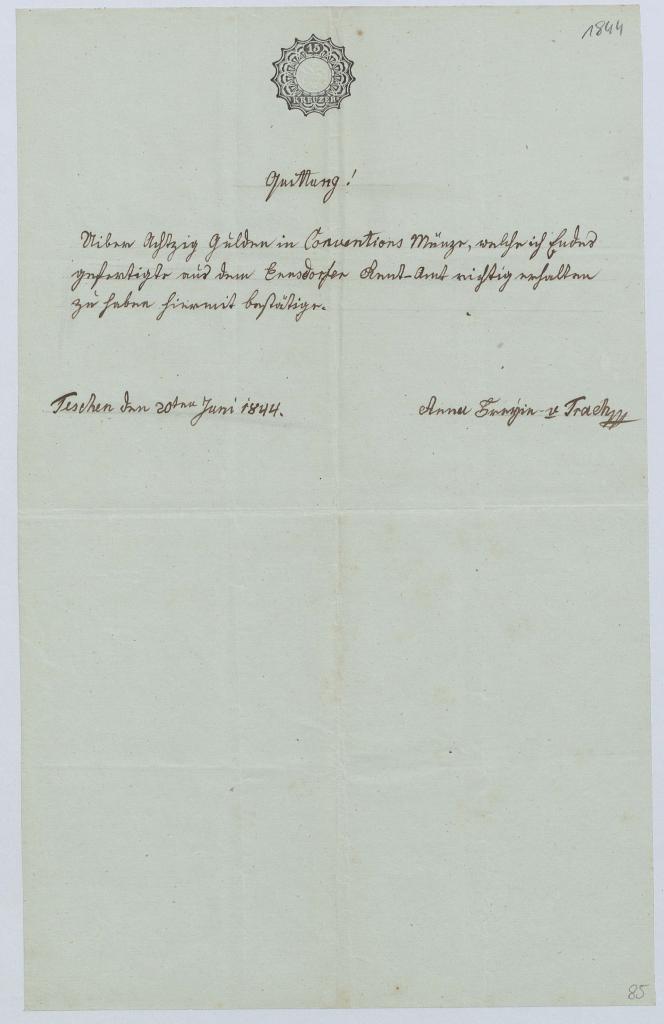 1844
15
KREUZER
Quittung!
Uiber Achtzig Gulden in Conventions Münze, welche ich Endes
gefertigte aus dem Rent-Amt richtig erhalten
zu haben hiermit bestätige.
Teschen den 20ten Juni 1844.
Anna Freyin v Trach
85